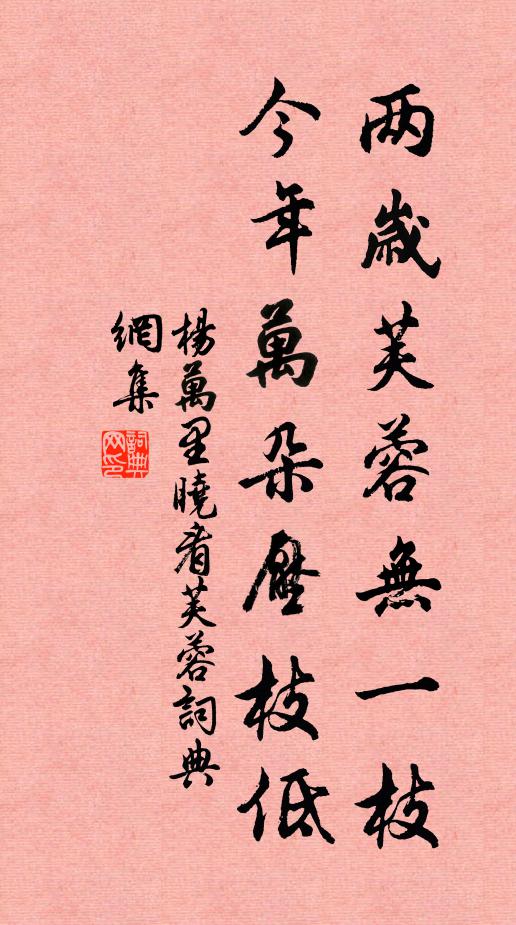 两歲芙蓉無一枝
今年萬朵壓枝低
楊萬里曉看芙蓉詞典
網集
詞典
网印